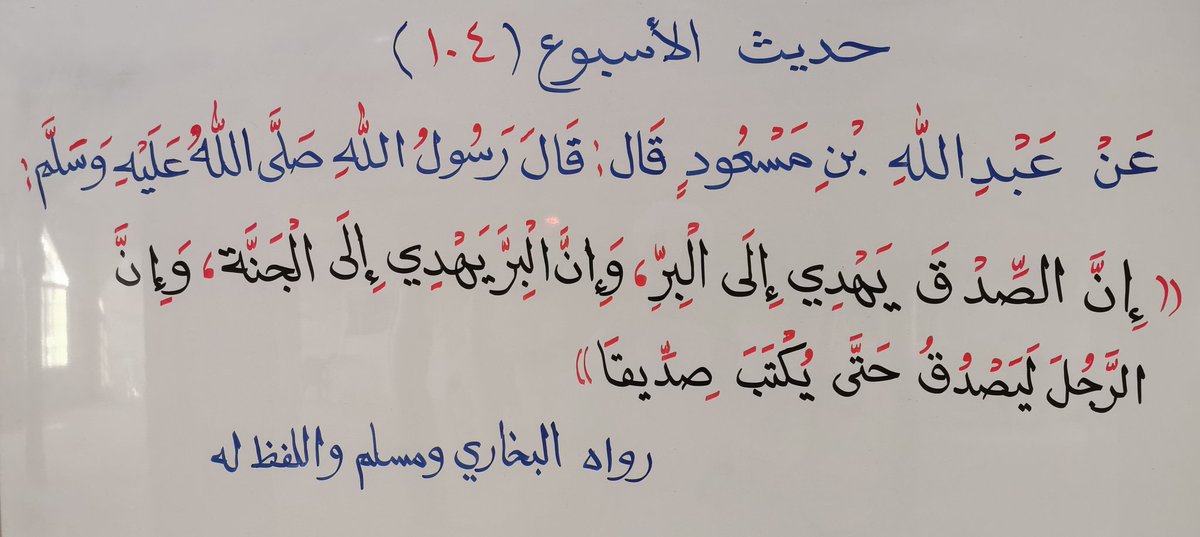 حديث الأسبوع (١٠٤)
عَنْ عَبْدِ اللهِ بْنِ مَسْعُودٍ قَال: قَالَ رَسُولُ اللهِ صَلَّى اللهُ عَلَيْهِ وَسَلَّم:
((إِنَّ الصِّدْقَ يَهْدِي إِلَى الْبِرِّ، وَإِنَّ الْبِرَّ يَهْدِي إِلَى الْجَنَّة، وَإِنَّ
الرَّجُلَ لَيَصْدُقُ حَتَّى يُكْتَبَ صِدِّيقًا))
رواه البخاري ومسلم واللفظ له